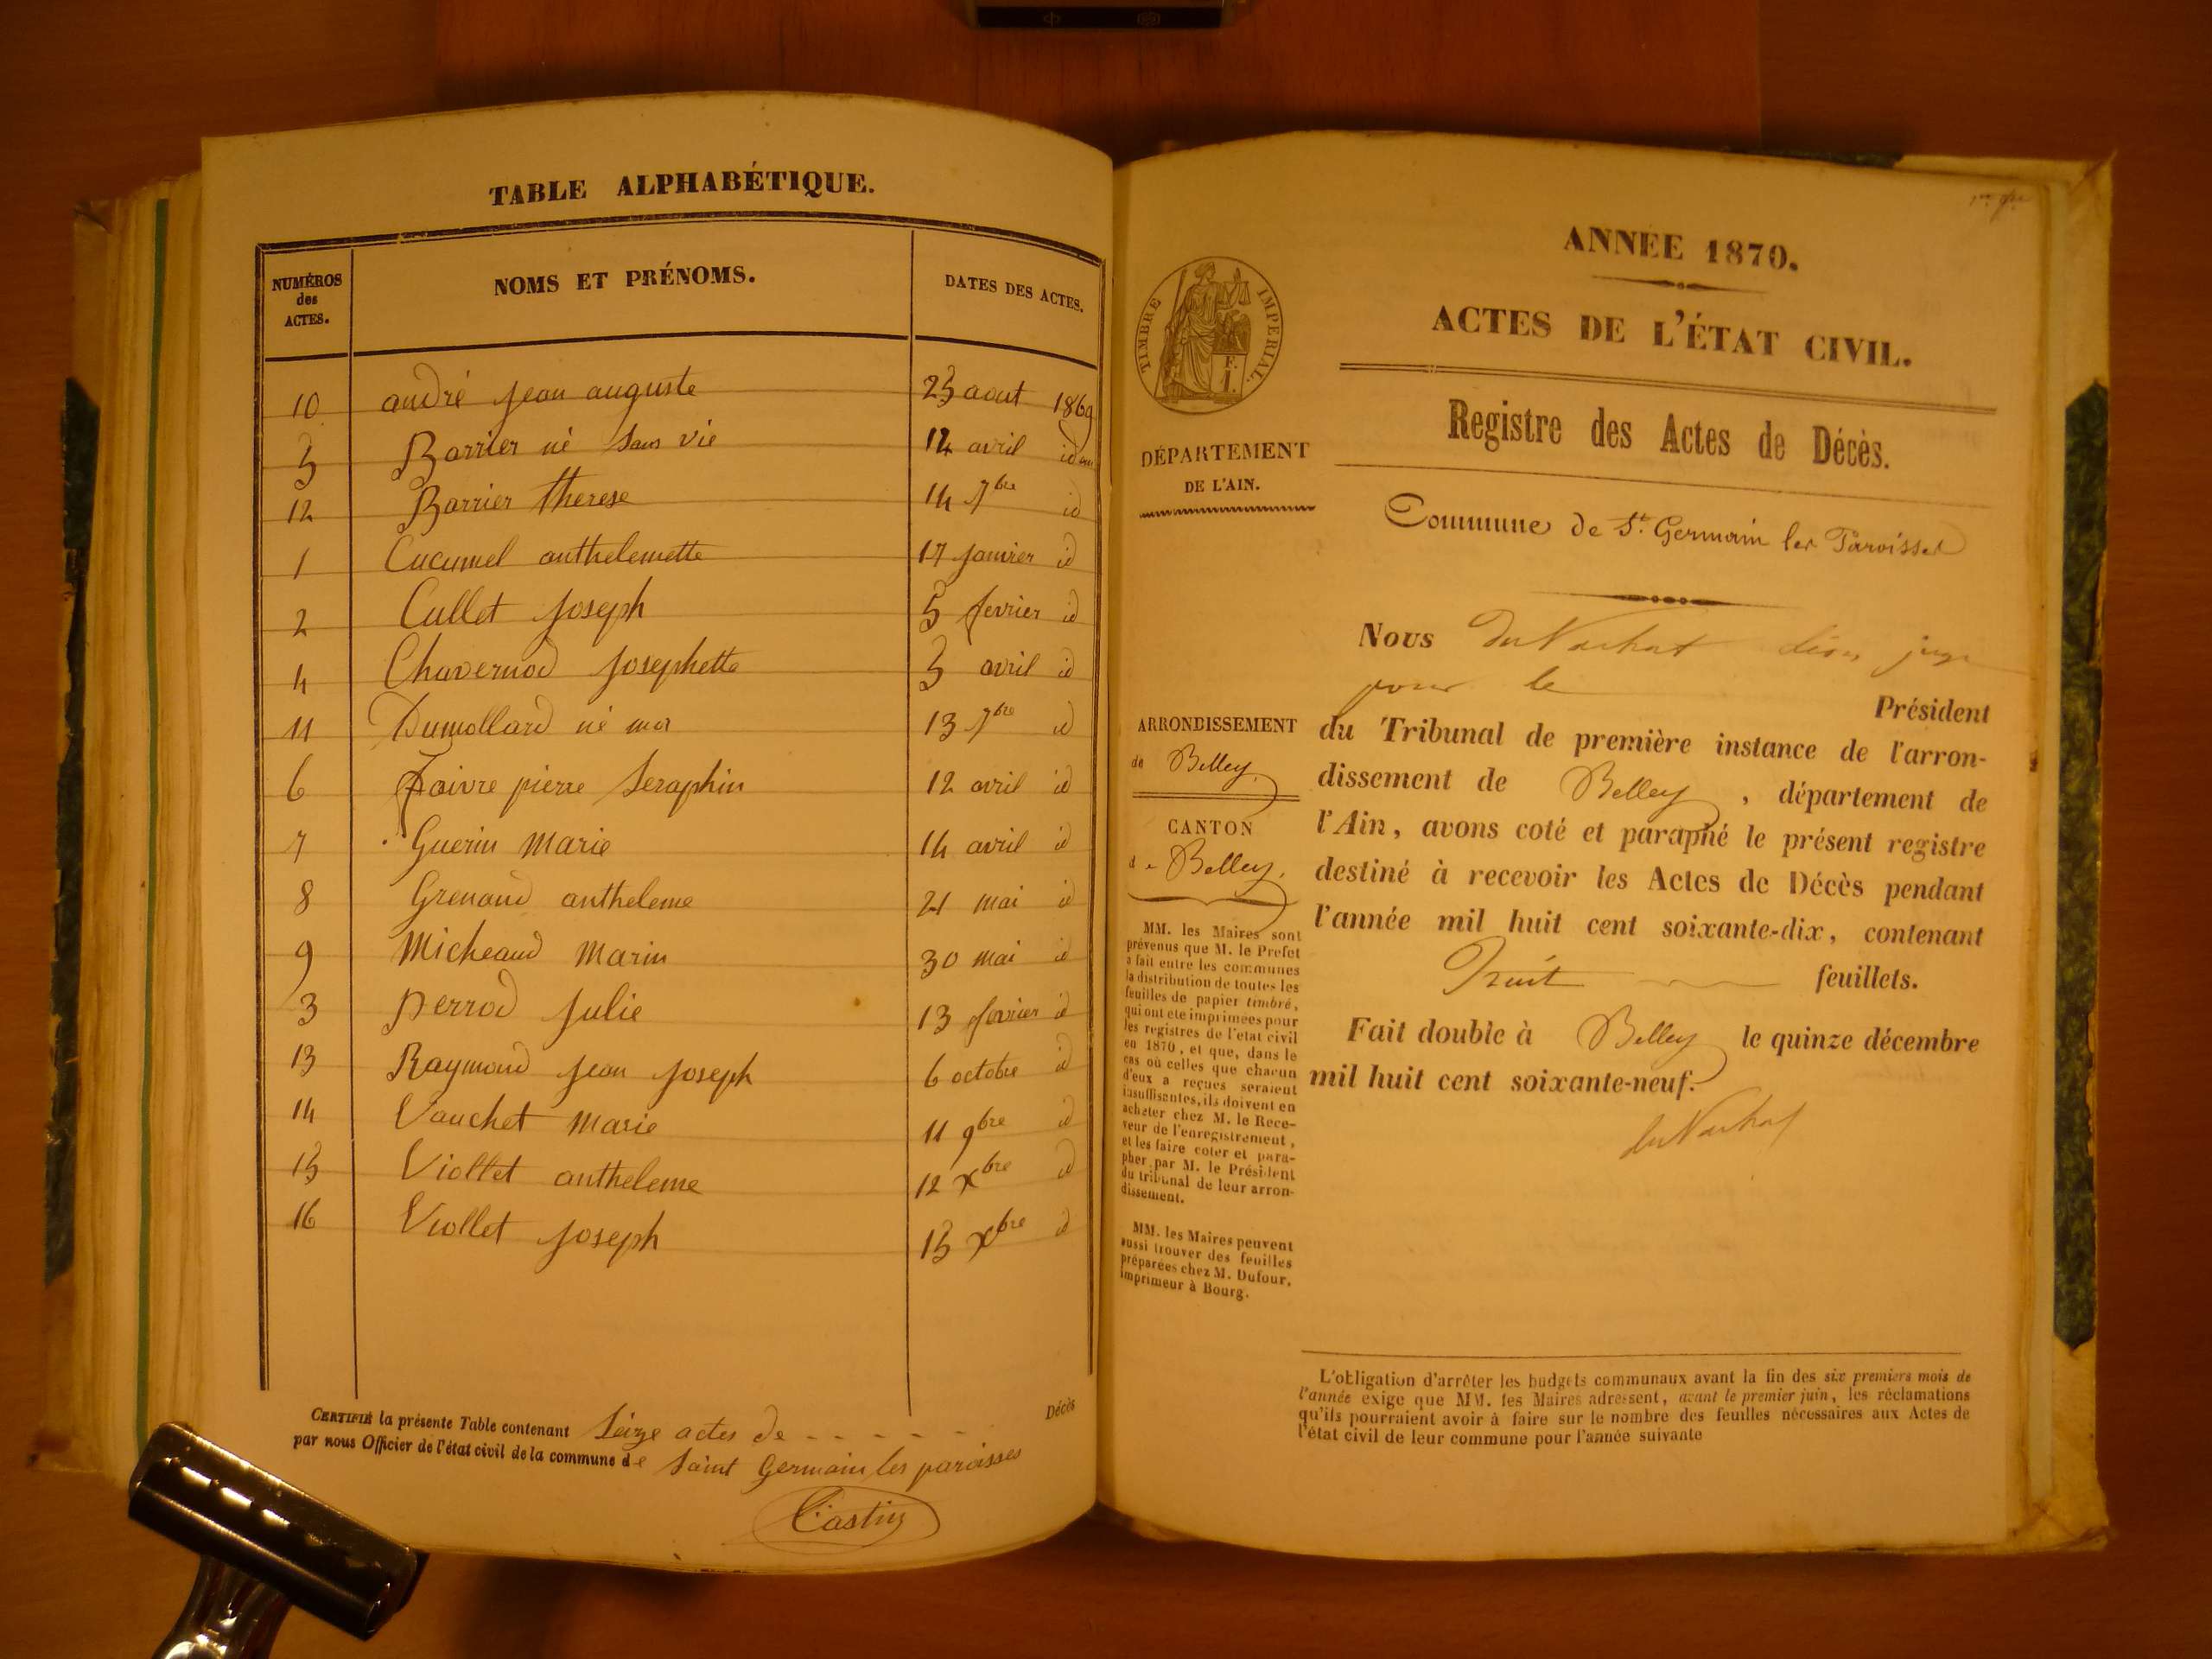 TABLE ALPHABÉTIQUE.
NUMÉROS des ACTES. NOMS ET PRÉNOMS. DATES DES ACTES.
10 andré jean auguste 25 aout 1869
5 Barrier né sans vie 12 avril idem
12 Barrier therese 14 7bre id
1 Cucumel anthelemette 17 janvier id
2 Cullet joseph 5 fevrier id
4 Chavernod josephette 5 avril id
11 Dumollard né mor 13 7bre id
6 faivre pierre Seraphin 12 avril id
7 Guerin Marie 14 avril id
8 Grenaud antheleme 21 mai id
9 Micheaud Marin 30 mai id
3 perrod julie 13 fevrier id
13 Raymond jean joseph 6 octobre id
14 Vauchet Marie 11 9bre id
15 Viollet antheleme 12 xbre id
16 Viollet joseph 15 xbre id
CERTIFIÉ la présente Table contenant Seize actes de - - - - - Décès
par nous Officier de l'état civil de la commune de Saint Germain les paroisses
Castin
ANNÉE 1870.
ACTES DE L'ÉTAT CIVIL.
Registre des Actes de Décès.
TIMBRE IMPERIAL.
F.
1.
DÉPARTEMENT
DE L'AIN.
Commune de St. Germain les Paroisses
Nous Du Nachat Léon juge
pour le Président
du Tribunal de première instance de l'arron-
dissement de Belley, département de
l'Ain, avons coté et paraphé le présent registre
destiné à recevoir les Actes de Décès pendant
l'année mil huit cent soixante-dix, contenant
huit feuillets.
Fait double à Belley le quinze décembre
mil huit cent soixante-neuf.
du Nachat
ARRONDISSEMENT
de Belley.
CANTON
de Belley.
MM. les Maires sont
prévenus que M. le Prefet
a fait entre les communes
la distribution de toutes les
feuilles de papier timbré,
qui ont ete imprimées pour
les registres de l'etat civil
en 1870, et que, dans le
cas où celles que chacun
d'eux a reçues seraient
insuffisantes, ils doivent en
acheter chez M. le Rece-
veur de l'enregistrement,
et les faire coter et para-
pher par M. le Président
du tribunal de leur arron-
dissement.
MM. les Maires peuvent
aussi trouver des feuilles
préparées chez M. Dufour,
imprimeur à Bourg.
L'obligation d'arrêter les budgets communaux avant la fin des six premiers mois de
l'année exige que MM. les Maires adressent, avant le premier juin, les réclamations
qu'ils pourraient avoir à faire sur le nombre des feuilles nécessaires aux Actes de
l'état civil de leur commune pour l'année suivante